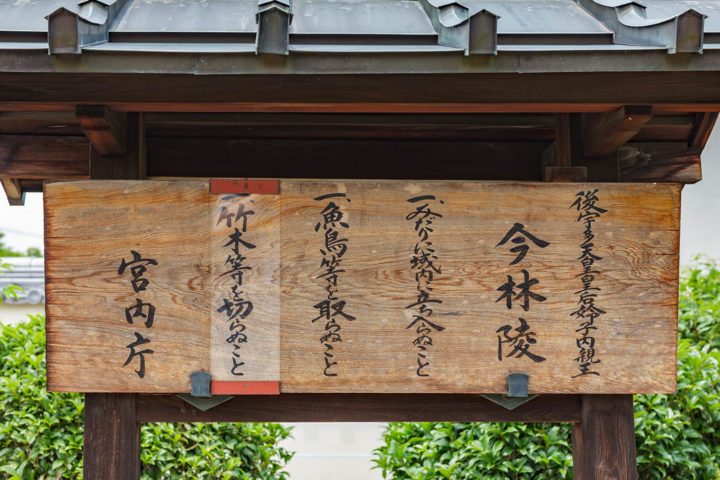 後宇多天皇皇后姈子内親王
今林陵
一、みだりに域内に立ち入らぬこと
一、魚鳥等を取らぬこと
一、竹木等を切らぬこと
宮内庁